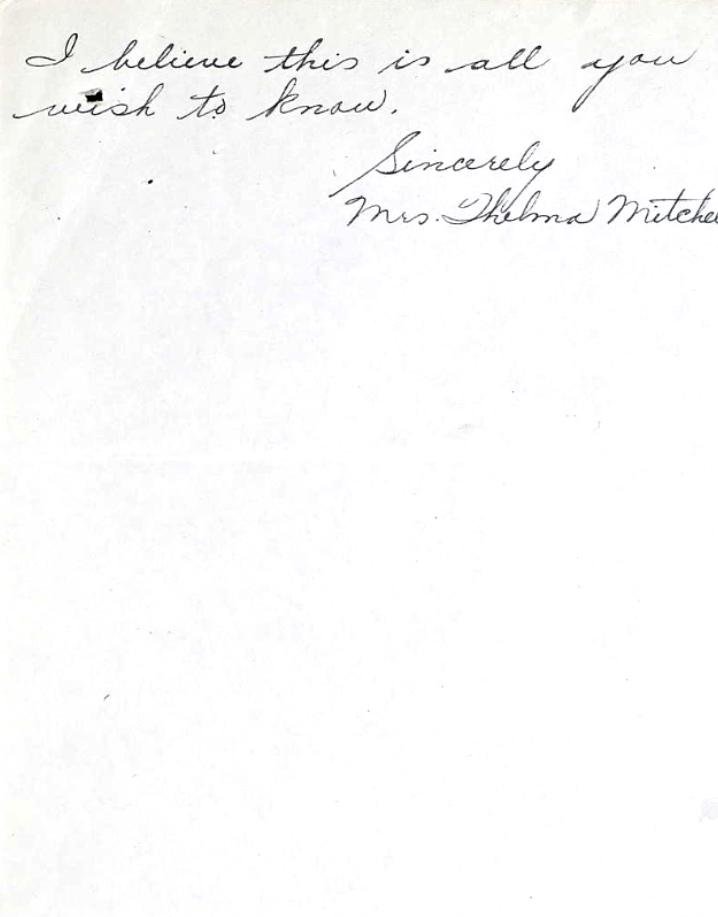 I believe this is all you
wish to know.
Sincerely
Mrs. Thelma Mitche